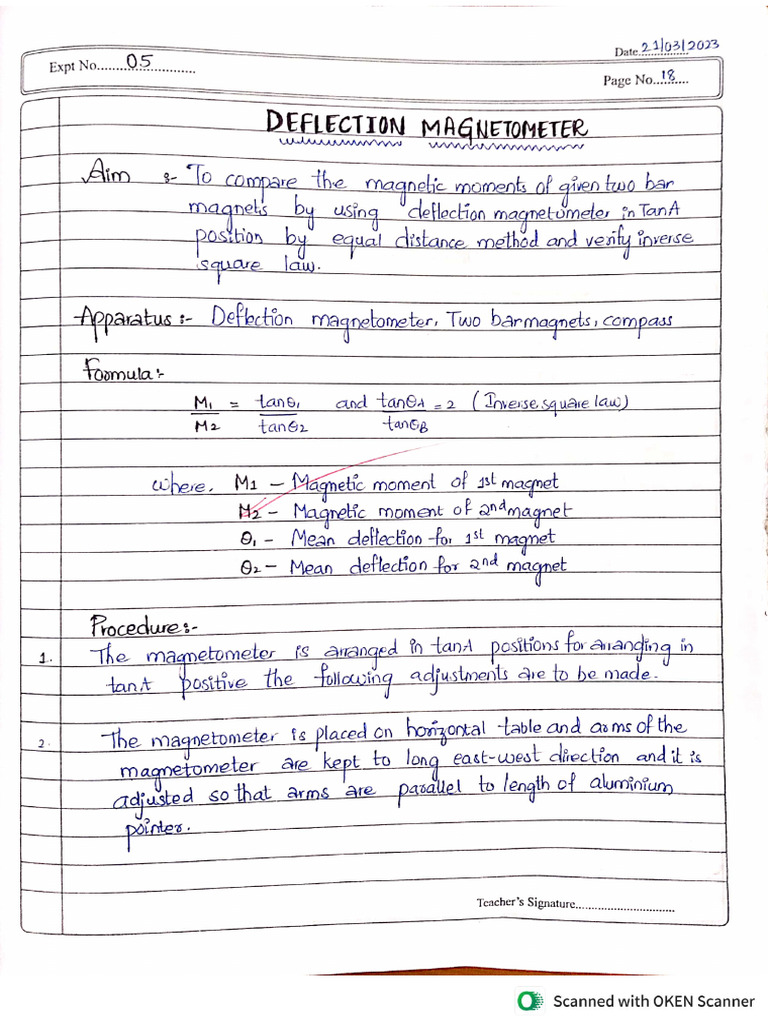 Date..21/03/2023
Expt No........05............
Page No...18.......
DEFLECTION MAGNETOMETER
Aim :- To compare the magnetic moments of given two bar
magnets by using deflection magnetometer in TanA
position by equal distance method and verify inverse
square law.
Apparatus :- Deflection magnetometer, Two barmagnets, compass
Formula:-
M1/M2 = tanθ1/tanθ2 and tanθA/tanθB = 2 (Inverse square law)
where. M1 - Magnetic moment of 1st magnet
M2 - Magnetic moment of 2nd magnet
θ1 - Mean deflection for 1st magnet
θ2 - Mean deflection for 2nd magnet
Procedure:-
1. The magnetometer is arranged in tanA positions for arranding in
tanA positive the following adjustments are to be made.
2. The magnetometer is placed on horizontal table and arms of the
magnetometer are kept to long east-west direction and it is
adjusted so that arms are parallel to length of aluminium
pointer.
Teacher's Signature..............................
Scanned with OKEN Scanner